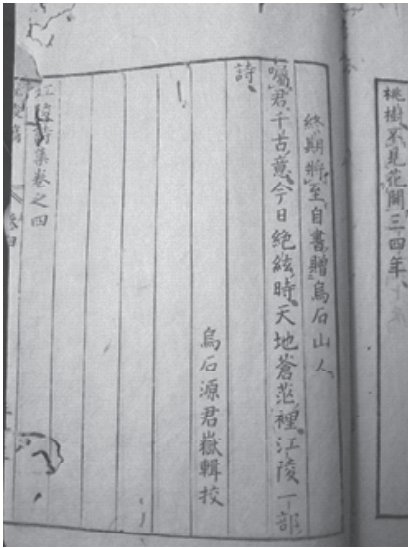 桃樹不見花開三四年
終期將至自書贈烏石山人
囑君千古意今日絕絃時天地蒼茫裡江陵一部
詩
烏石源君嶽輯挍
江陵詩集卷之四